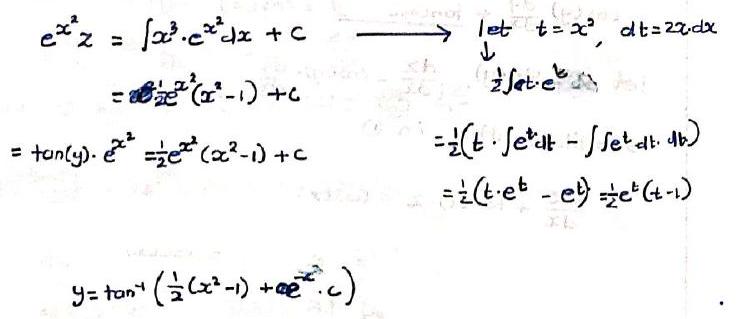 e^{x²} z = ∫x³·e^{x²}dx + c ⟶ let t = x², dt = 2x·dx
↓
½∫t·e^t
= ½e^{x²}(x²-1) + c
= tan(y)·e^{x²} = ½e^{x²}(x²-1) + c
= ½(t·∫e^t dt - ∫∫e^t dt·dt)
= ½(t·e^t - e^t) = ½e^t(t-1)
y = tan⁻¹(½(x²-1) + e^{-x²}·c)